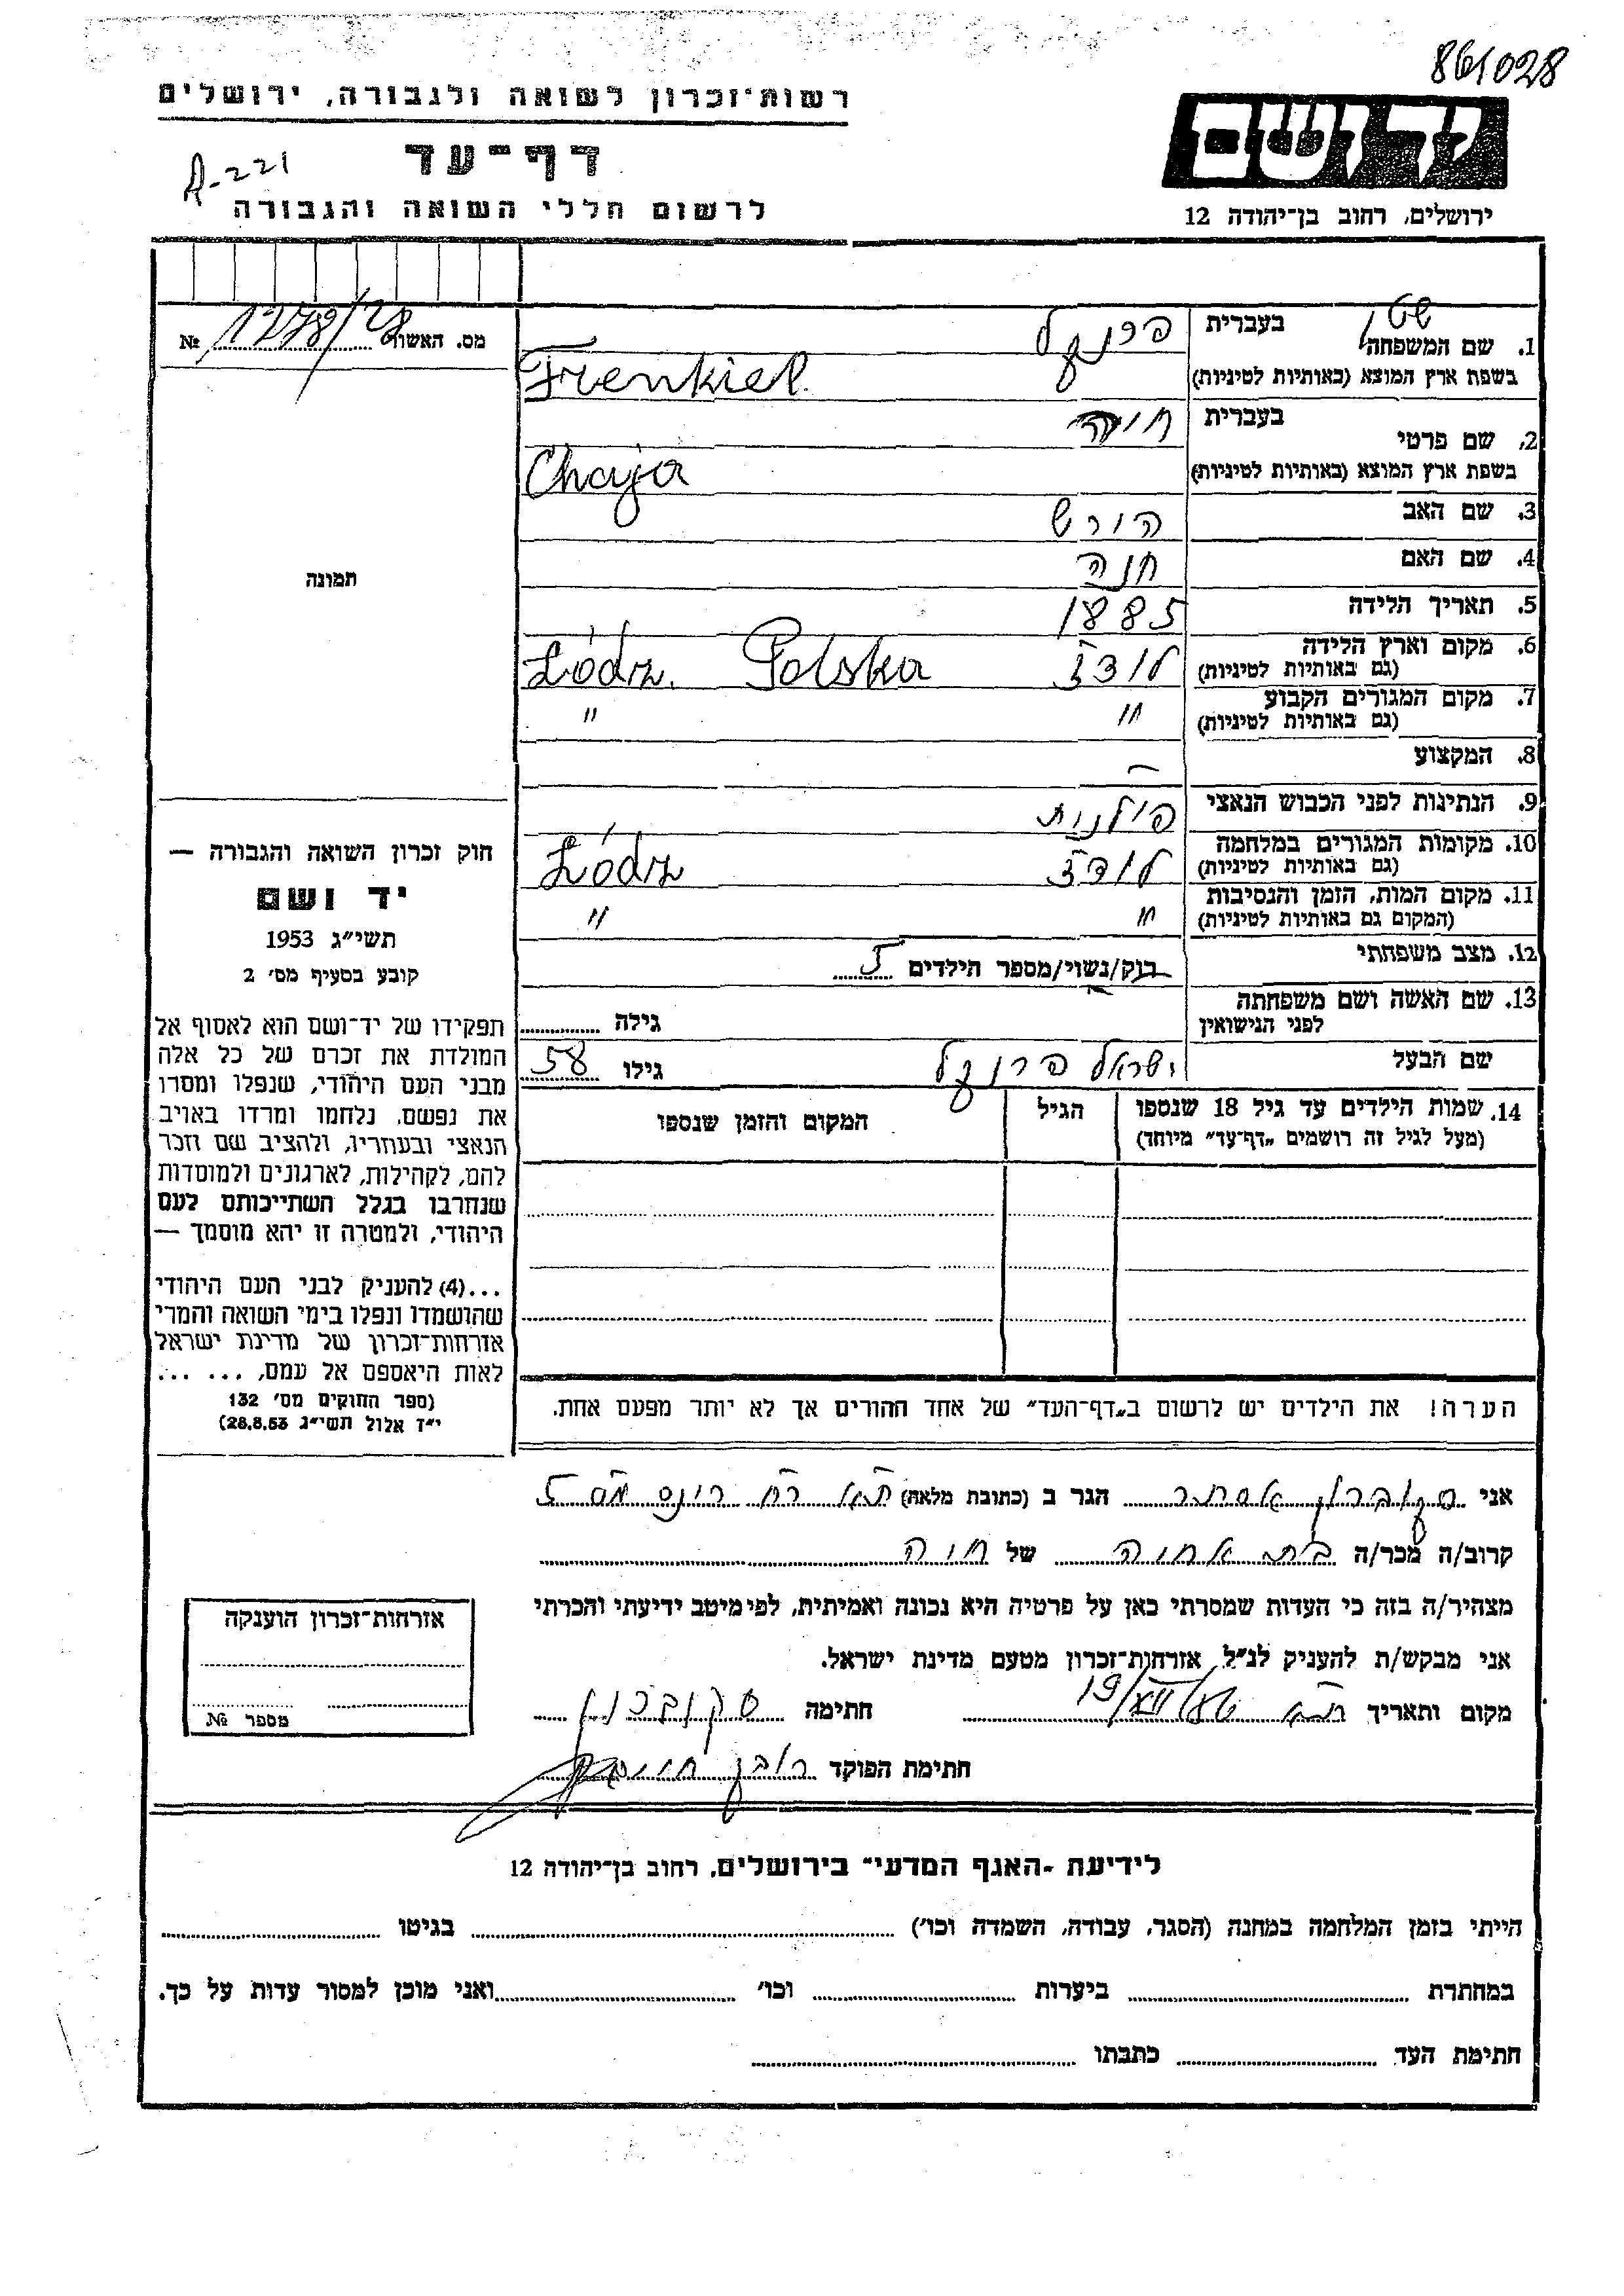 861028
רשות־זכרון לשואה ולגבורה, ירושלים
יד ושם
דף־עד
A-221
לרשום חללי השואה והגבורה
ירושלים, רחוב בן־יהודה 12
מס. האשור 1278/28 №
1. שם המשפחה בעברית פרנקל
בשפת ארץ המוצא (באותיות לטיניות) Frenkiel.
2. שם פרטי בעברית חיה
בשפת ארץ המוצא (באותיות לטיניות) Chaja
3. שם האב הירש
4. שם האם חנה
תמונה
5. תאריך הלידה 1885
6. מקום וארץ הלידה (גם באותיות לטיניות) לודז Łódz. Polska
7. מקום המגורים הקבוע (גם באותיות לטיניות) " "
8. המקצוע –
9. הנתינות לפני הכבוש הנאצי פולנית
10. מקומות המגורים במלחמה (גם באותיות לטיניות) לודז Łódz
11. מקום המות, הזמן והנסיבות (המקום גם באותיות לטיניות) " "
12. מצב משפחתי רוק/נשוי/מספר הילדים 5
13. שם האשה ושם משפחתה לפני הנישואין – גילה
שם הבעל ישראל פרנקל גילו 58
14. שמות הילדים עד גיל 18 שנספו
(מעל לגיל זה רושמים „דף־עד" מיוחד)
הגיל
המקום והזמן שנספו
חוק זכרון השואה והגבורה —
יד ושם
תשי״ג 1953
קובע בסעיף מס׳ 2
תפקידו של יד־ושם הוא לאסוף אל
המולדת את זכרם של כל אלה
מבני העם היהודי, שנפלו ומסרו
את נפשם, נלחמו ומרדו באויב
הנאצי ובעוזריו, ולהציב שם וזכר
להם, לקהילות, לארגונים ולמוסדות
שנחרבו בגלל השתייכותם לעם
היהודי, ולמטרה זו יהא מוסמך —
...(4) להעניק לבני העם היהודי
שהושמדו ונפלו בימי השואה והמרי
אזרחות־זכרון של מדינת ישראל
לאות היאספם אל עמם, ... ...
(ספר החוקים מס׳ 132
י״ז אלול תשי״ג 28.8.53)
הערה! את הילדים יש לרשום ב„דף־העד" של אחד ההורים אך לא יותר מפעם אחת.
אני אסתר הגר ב (כתובת מלאה) ת"א רח' מס 5
קרוב/ה מכר/ה בת אחיה של חיה
מצהיר/ה בזה כי העדות שמסרתי כאן על פרטיה היא נכונה ואמיתית, לפי מיטב ידיעתי והכרתי
אני מבקש/ת להעניק לנ״ל אזרחות־זכרון מטעם מדינת ישראל.
מקום ותאריך ת"א 19/XII חתימה
חתימת הפוקד ראובן
אזרחות־זכרון הוענקה
מספר №
לידיעת ״האגף המדעי״ בירושלים, רחוב בן־יהודה 12
הייתי בזמן המלחמה במחנה (הסגר, עבודה, השמדה וכו׳) בגיטו
במחתרת ביערות וכו׳ ואני מוכן למסור עדות על כך.
חתימת העד כתבתו